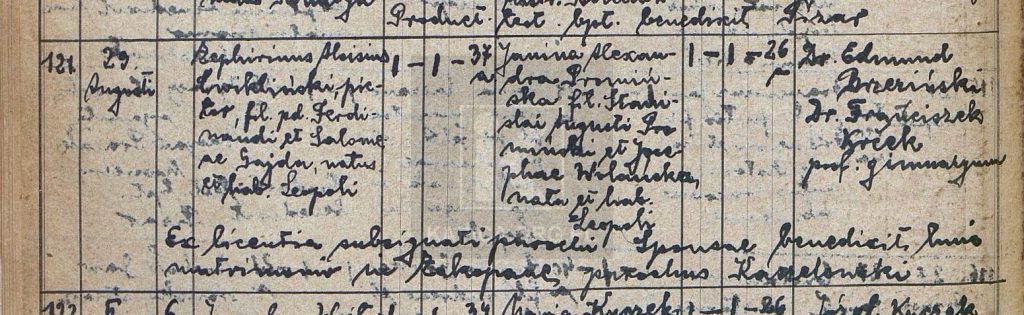 Product. test. bpt. benedixit Pizar
121 29 Augusti
Zephirinus Aloisius
Ćwikliński, pic-
tor, fil. pd. Ferdi-
nandi et Salome
ae Gajda, natus
et hab. Leopoli
1 — 1 — 37 a
Janina Alexan-
dra Promiń-
ska fil. Stani-
slai Augusti Pro
minski et Jose-
phae Wilamska,
nata et hab.
Leopoli
1 — 1 — 26
Dr. Edmund
Brzeziński
Dr. Franciszek
Krček
prof. gimnazyum
Ex licentia subsignati parochi Sponsae benedixit huic
matrimonio in Zakopane, parochus Kaszelewski
122 34 26